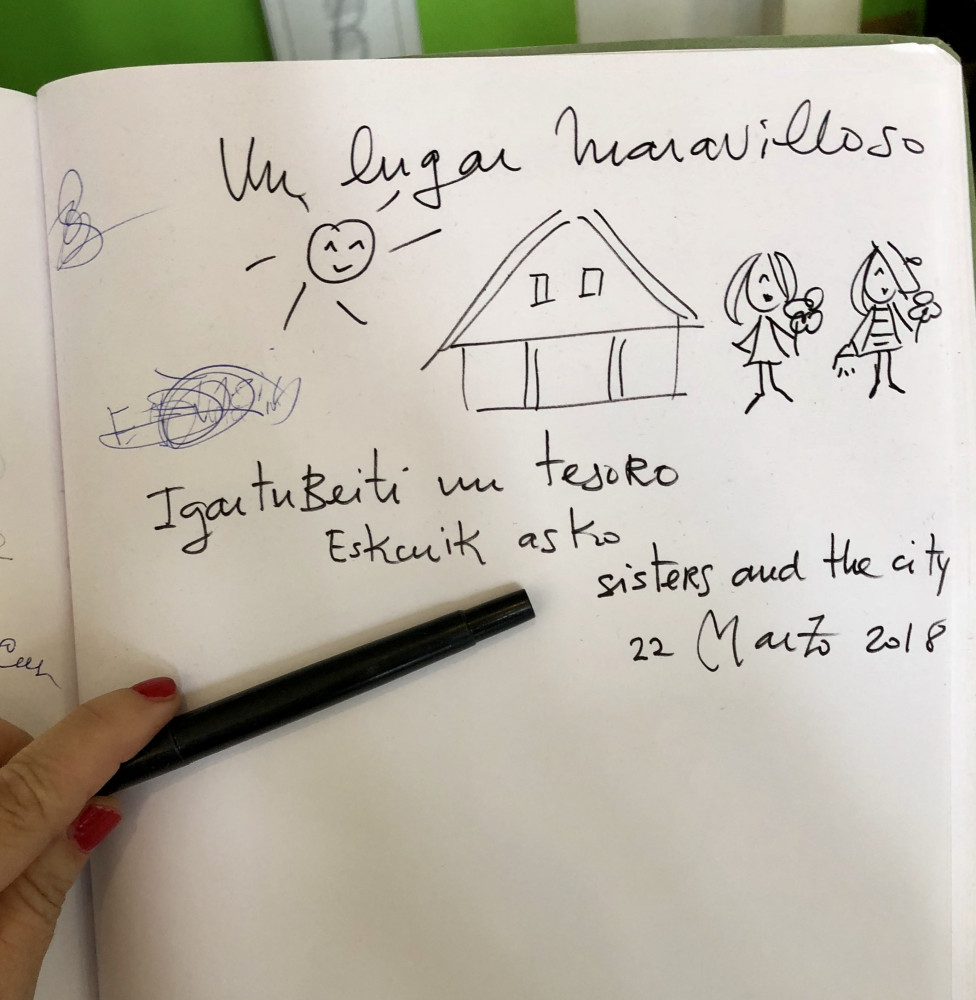 Un lugar maravilloso
IgartuBeiti un tesoro
Eskerrik asko
sisters and the city
22 Marzo 2018